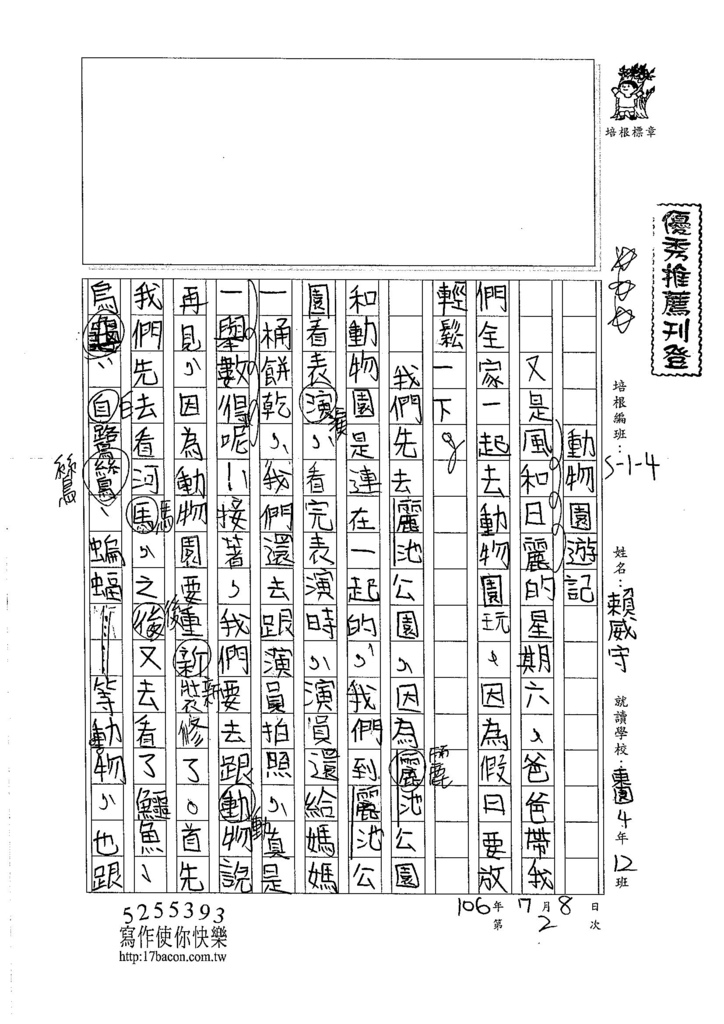 培根標章
優秀推薦刊登
培根編班：S-1-4
姓名：賴威宇
就讀學校：東園4年12班
106年7月8日
第2次
動物園遊記
又是風和日麗的星期六，爸爸帶我
們全家一起去動物園玩，因為假日要放
輕鬆一下。
我們先去麗池公園，因為麗池公園
和動物園是連在一起的，我們到麗池公
園看表演，看完表演時，演員還給媽媽
一桶餅乾，我們還去跟演員拍照，真是
一舉數得呢！接著，我們要去跟動物說
再見，因為動物園要重新裝修了。首先
我們先去看河馬，之後又去看了鱷魚、
烏龜、白鷺鷥、蝙蝠……等動物，也跟
麗
演
動
新
後
馬
白
鷥
5255393
寫作使你快樂
http:17bacon.com.tw